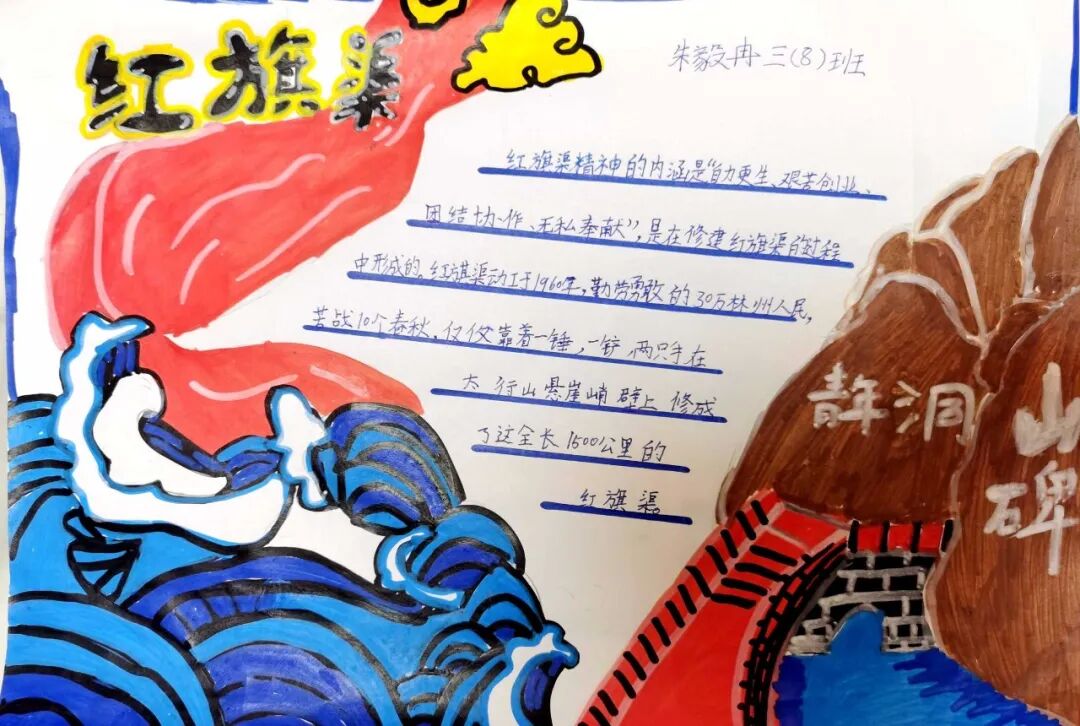 红旗渠
朱毅冉 三(8)班
红旗渠精神的内涵是"自力更生、艰苦创业、
团结协作、无私奉献"，是在修建红旗渠的过程
中形成的。红旗渠动工于1960年，勤劳勇敢的30万林州人民，
苦战10个春秋，仅仅靠着一锤，一铲，两只手在
太行山悬崖峭壁上修成
了这全长1500公里的
红旗渠
青年洞
山
碑